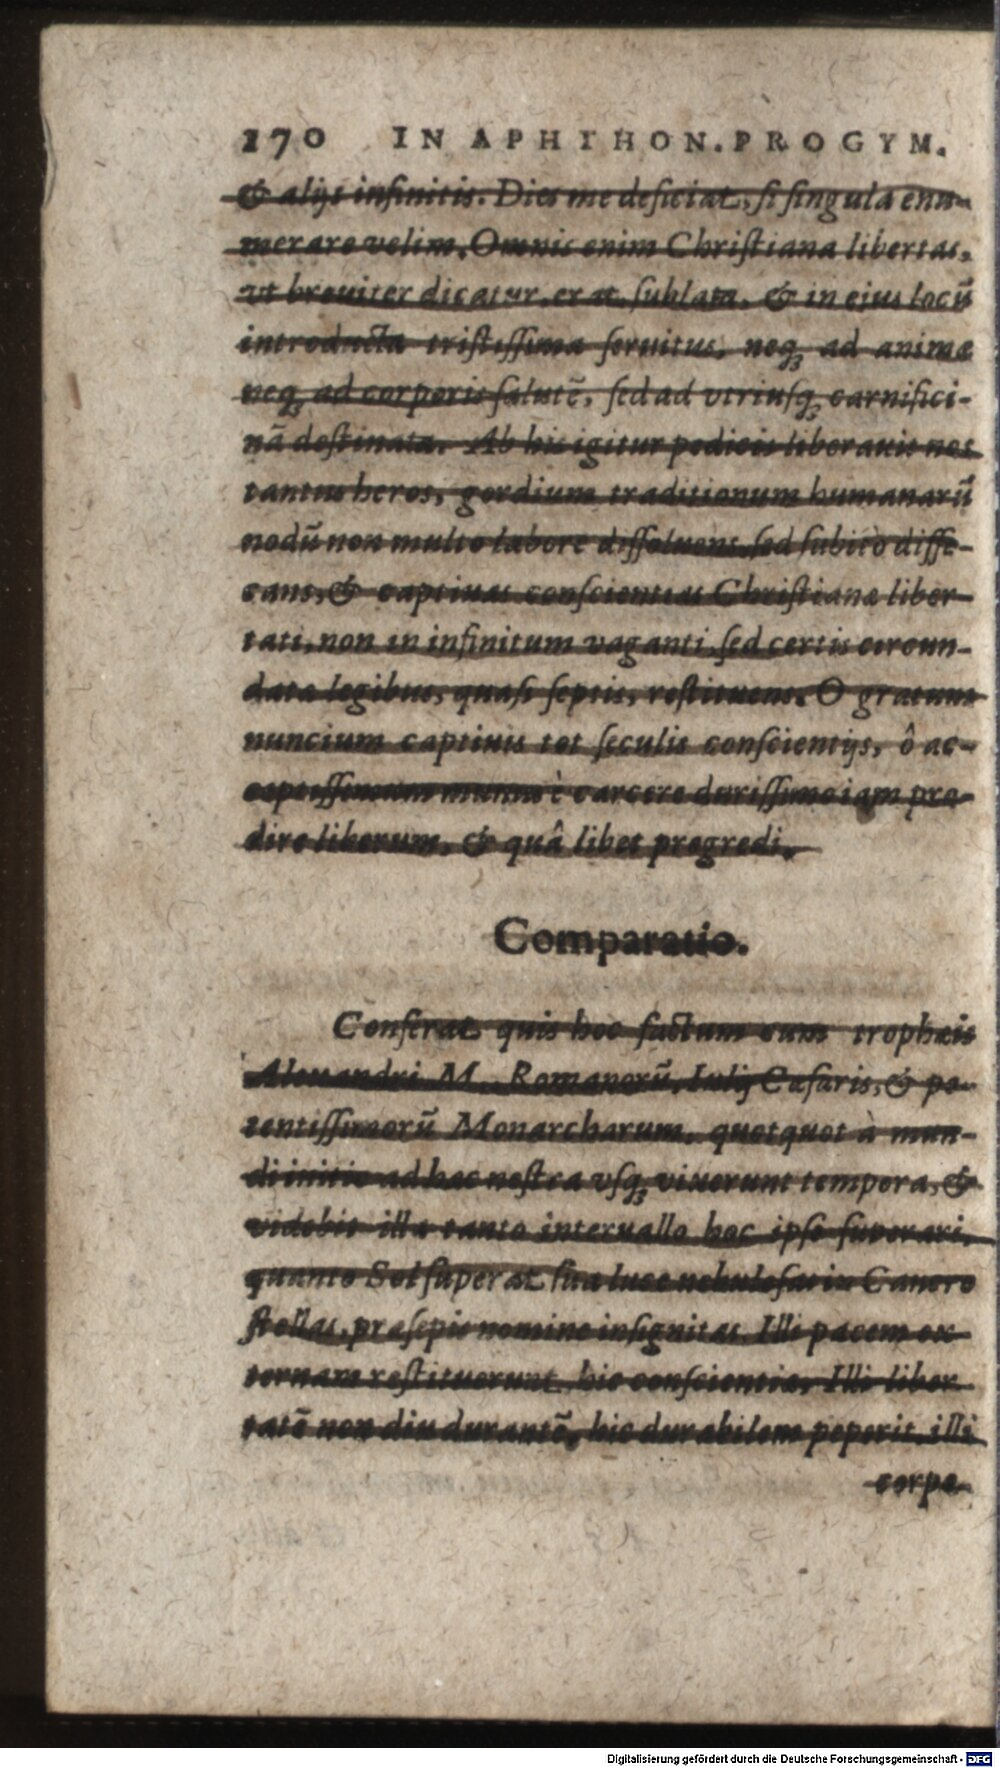 170 IN APHTHON. PROGYM.
& alijs infinitis. Dies me deficiat, si singula enu-
merare velim. Omnis enim Christiana libertas,
vt breuiter dicatur, erat sublata, & in eius locū
introducta tristissima seruitus, neq; ad animæ
neq; ad corporis salutē, sed ad vtriusq; carnifici-
nā destinata. Ab his igitur pedicis liberauit nos
tantus heros, gordium traditionum humanarū
nodū non multo labore dissoluens, sed subitò disse-
cans, & captiuas conscientias Christianæ liber-
tati, non in infinitum vaganti, sed certis circun-
datæ legibus, quasi septis, restituens. O gratum
nuncium captiuis tot seculis conscientijs, ô ac-
ceptissimum munus è carcere durissimo iam pro-
dire liberum, & quâ libet progredi.
Comparatio.
Conferat quis hoc factum cum trophæis
Alexandri M. Romanorū, Iulij Cæsaris, & po-
tentissimorū Monarcharum, quotquot à mun-
di initio ad hæc nostra vsq; vixerunt tempora, &
videbit illa tanto interuallo hoc ipso superari,
quanto Sol superat sua luce nebulosas in Cancro
stellas, præsepis nomine insignitas. Illi pacem ex-
ternam restituerunt, hic conscientiæ. Illi liber-
tatē non diu durantē, hic durabilem peperit. illi
corpo-
Digitalisierung gefördert durch die Deutsche Forschungsgemeinschaft - DFG